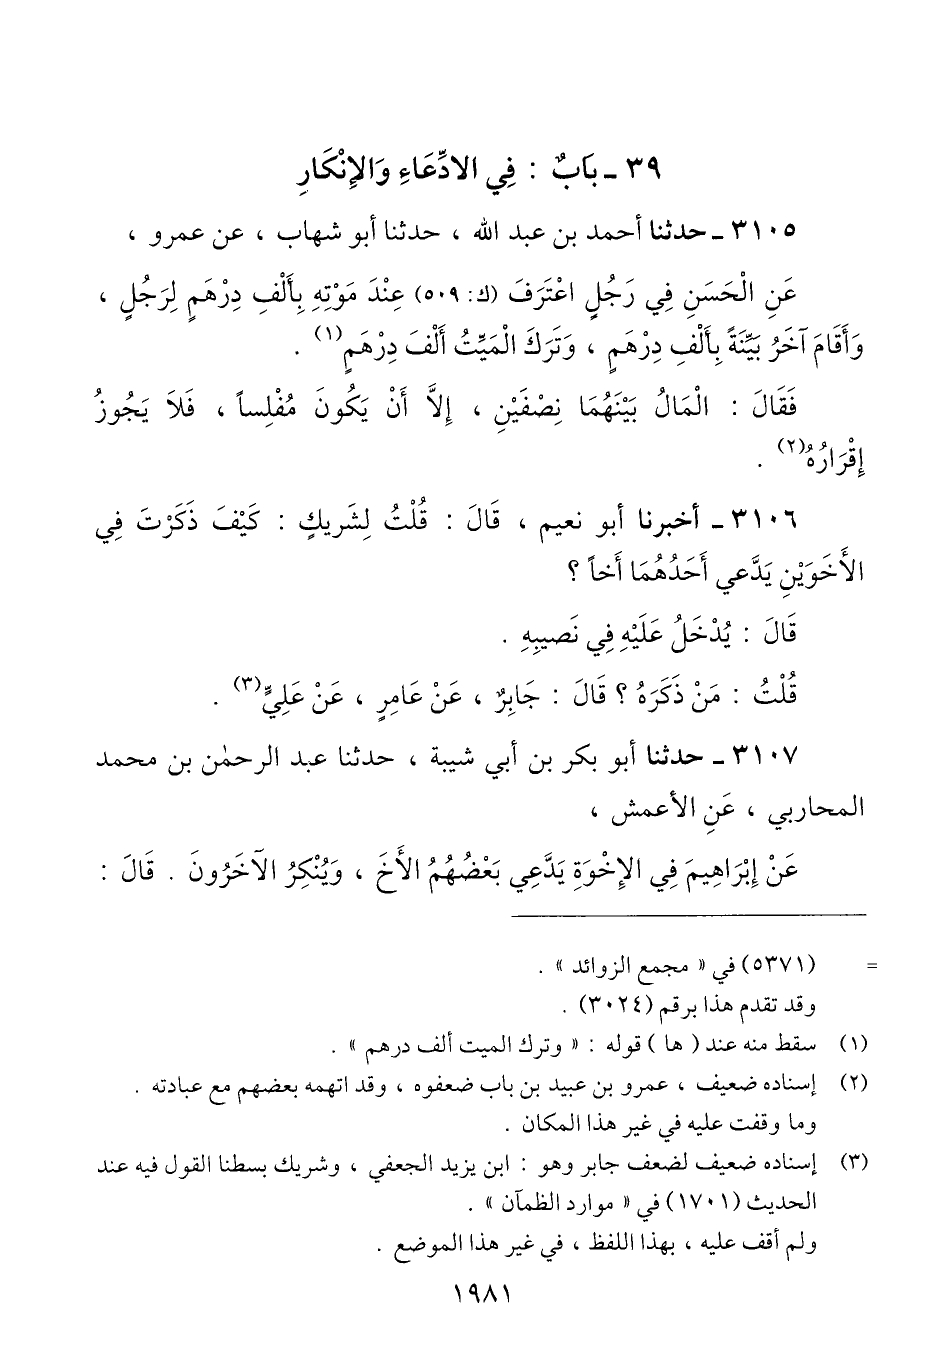 ٣٩ ـ بَابٌ : فِي الادِّعَاءِ وَالإِنْكَارِ
٣١٠٥ ـ حدثنا أحمد بن عبد الله ، حدثنا أبو شهاب ، عن عمرو ،
عَنِ الْحَسَنِ فِي رَجُلٍ اعْتَرَفَ (ك: ٥٠٩) عِنْدَ مَوْتِهِ بِأَلْفِ دِرْهَمٍ لِرَجُلٍ ،
وَأَقَامَ آخَرُ بَيِّنَةً بِأَلْفِ دِرْهَمٍ ، وَتَرَكَ الْمَيِّتُ أَلْفَ دِرْهَمٍ(١) .
فَقَالَ : الْمَالُ بَيْنَهُمَا نِصْفَيْنِ ، إِلاَّ أَنْ يَكُونَ مُفْلِساً ، فَلاَ يَجُوزُ
إِقْرَارُهُ(٢) .
٣١٠٦ ـ أخبرنا أبو نعيم ، قَالَ : قُلْتُ لِشَرِيكٍ : كَيْفَ ذَكَرْتَ فِي
الأَخَوَيْنِ يَدَّعي أَحَدُهُمَا أَخاً ؟
قَالَ : يُدْخَلُ عَلَيْهِ فِي نَصيبِهِ .
قُلْتُ : مَنْ ذَكَرَهُ ؟ قَالَ : جَابِرٌ ، عَنْ عَامِرٍ ، عَنْ عَلِيٍّ(٣) .
٣١٠٧ ـ حدثنا أبو بكر بن أبي شيبة ، حدثنا عبد الرحمٰن بن محمد
المحاربي ، عَنِ الأعمش ،
عَنْ إِبْرَاهِيمَ فِي الإِخْوَةِ يَدَّعِي بَعْضُهُمُ الأَخَ ، وَيُنْكِرُ الآخَرُونَ . قَالَ :
= (٥٣٧١) في « مجمع الزوائد » .
وقد تقدم هذا برقم (٣٠٢٤) .
(١) سقط منه عند ( ها ) قوله : « وترك الميت ألف درهم » .
(٢) إسناده ضعيف ، عمرو بن عبيد بن باب ضعفوه ، وقد اتهمه بعضهم مع عبادته .
وما وقفت عليه في غير هذا المكان .
(٣) إسناده ضعيف لضعف جابر وهو : ابن يزيد الجعفي ، وشريك بسطنا القول فيه عند
الحديث (١٧٠١) في « موارد الظمآن » .
ولم أقف عليه ، بهذا اللفظ ، في غير هذا الموضع .
١٩٨١